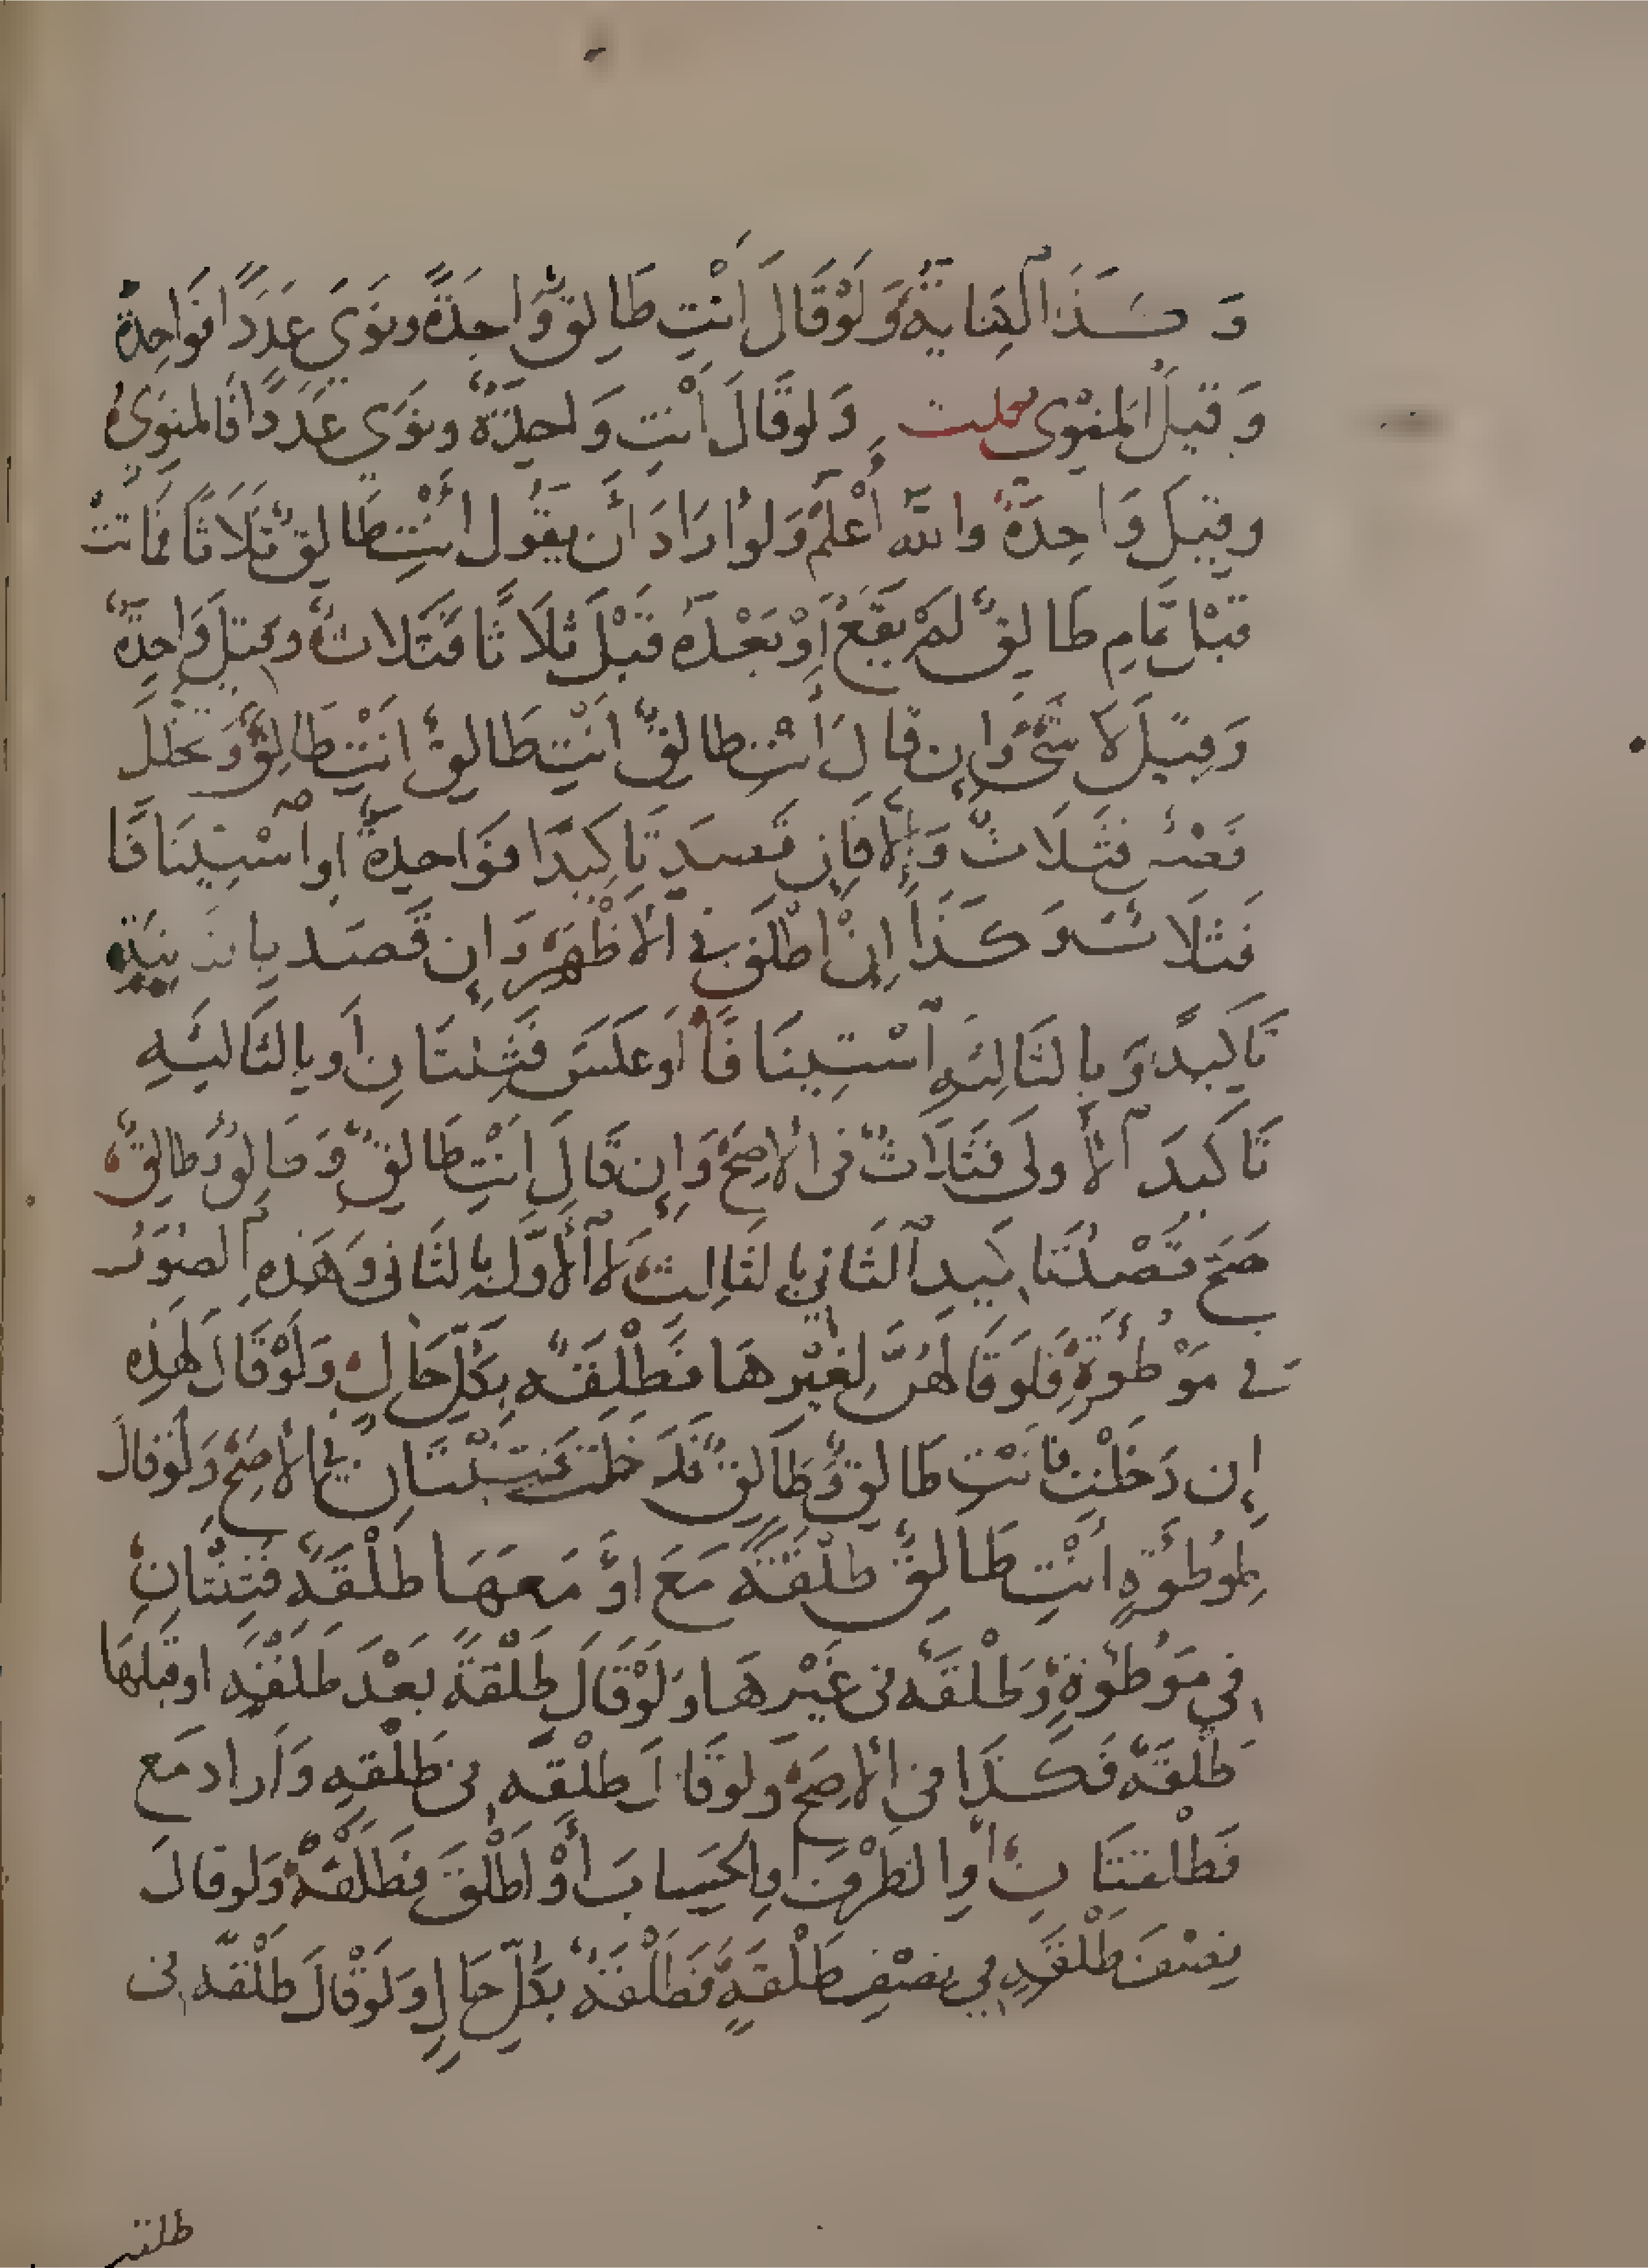 وَكَذَا الْكِنَايَةُ وَلَوْ قَالَ أَنْتِ طَالِقٌ وَّاحِدَةً وَنَوَى عَدَدًا فَوَاحِدَةٌ
وَقِيلَ الْمَنْوِىُّ قلت وَلَوْ قَالَ أَنْتِ وَاحِدَةٌ وَنَوَى عَدَدًا فَالْمَنْوِىُّ
وقِيلَ وَاحِدَةٌ واللهُ أَعْلَمُ وَلَوْ ارَادَ أَن يَقُولَ انْتِ طَالِقٌ ثَلَاثًا فَمَاتَتْ
قَبْلَ تَمَامِ طَالِقٌ لَمْ يَقَعْ أَوْ بَعْدَهُ قَبْلَ ثَلَاثًا فَثَلَاثٌ وَقِيلَ وَاحِدَةٌ
وَقِيلَ لَا شَىْءَ وَإِن قَالَ أَنْتِ طَالِقٌ أَنْتِ طَالِقٌ أَنْتِ طَالِقٌ وَتَخَلَّلَ
فَصْلٌ فَثَلَاثٌ وَإِلَّا فَإِن قَصَدَ تَاكِيدًا فَوَاحِدَةٌ اوِ اسْتِينَافًا
فَثَلَاثٌ وَكَذَا إِنْ أَطْلَقَ فِي الْأَظْهَرِ وَإِن قَصَدَ بِالثَّانِيَةِ
تَاكِيدًا وَبِالثَّالِثَةِ اسْتِينَافًا أَوْ عَكَسَ فَثِنْتَانِ أَوْ بِالثَّالِثَةِ
تَاكِيدَ الْأُولَى فَثَلَاثٌ فى الْأَصَحِّ وَإِن قَالَ أَنْتِ طَالِقٌ وَطَالِقٌ وَطَالِقٌ
صَحَّ قَصْدُ تَاكِيدِ الثَّانِي بِالثَّالِثِ لَا الْأَوَّلِ بِالثَّانِى وَهَذِهِ الصُّوَرُ
فِي مَوْطُوءَةٍ فَلَوْ قَالَهُنَّ لِغَيْرِهَا فَطَلْقَةٌ بِكُلِّ حَالٍ وَلَوْ قَالَ لِهَذِهِ
إِن دَخَلْتِ فَأَنْتِ طَالِقٌ وَطَالِقٌ فَدَخَلَتْ فَثِنْتَانِ فِي الْأَصَحِّ وَلَوْ قَالَ
لِمَوْطُوءَةٍ أَنْتِ طَالِقٌ طَلْقَةً مَعَ اوْ مَعَهَا طَلْقَةٌ فَثِنْتَانِ
فِي مَوْطُوءَةٍ وَطَلْقَةٌ فى غَيْرِهَا وَلَوْ قَالَ طَلْقَةً بَعْدَ طَلْقَةٍ او قَبْلَهَا
طَلْقَةٌ فَكَذَا فِي الْأَصَحِّ وَلَوْ قَالَ طَلْقَةً فى طَلْقَةٍ وَأَرَادَ مَعَ
فَطَلْقَتَانِ أَوِ الظَّرْفَ أَوِ الْحِسَابَ أَوْ أَطْلَقَ فَطَلْقَةٌ وَلَوْ قَالَ
نِصْفَ طَلْقَةٍ فِي نِصْفِ طَلْقَةٍ فَطَلْقَةٌ بِكُلِّ حَالٍ وَلَوْ قَالَ طَلْقَةً فى